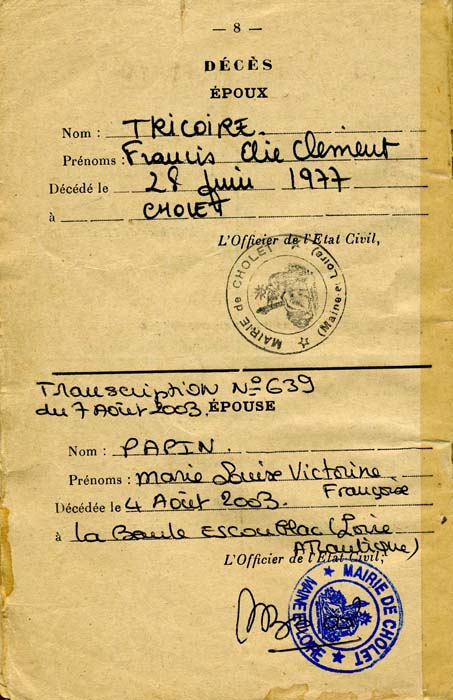 — 8 —
DÉCÈS
ÉPOUX
Nom : TRICOIRE.
Prénoms : Francis Elie Clement
Décédé le 28 Juin 1977
à CHOLET
L'Officier de l'Etat Civil,
MAIRIE de CHOLET ☆ (Maine-&-Loire) ☆
Transcription N° 639
du 7 Août 2003. ÉPOUSE
Nom : PAPIN.
Prénoms : Marie Louise Victorine
Françoise
Décédée le 4 Août 2003.
à La Baule Escoublac (Loire
Atlantique)
L'Officier de l'Etat Civil,
★ MAIRIE DE CHOLET ★ MAINE ET LOIRE